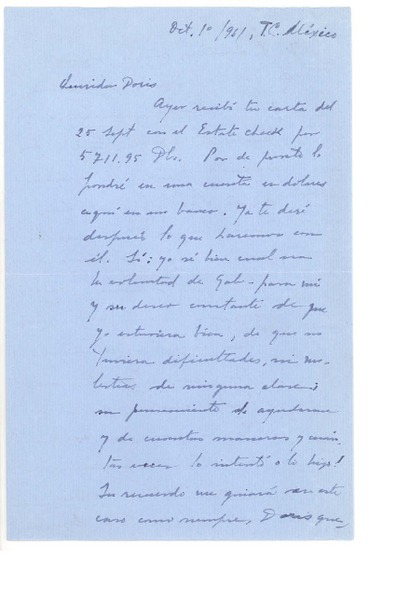 Oct. 10/961, T.C. México
Querida Doris
Ayer recibí tu carta del
25 Sept con el Estate check por
5711.95 Dls. Por de pronto lo
pondré en una cuenta en dolares
aquí en un banco. Ya te diré
después lo que hacemos con
él. Sí; yo sé bien cual era
la voluntad de Gab- para mí
y su deseo constante de que
yo estuviera bien, de que no
tuviera dificultades, ni mo-
lestias de ninguna clase;
su pensamiento de ayudarme
y de cuantas maneras y cuán-
tas veces lo intentó o lo hizo!
Su recuerdo me guiará en este
caso como siempre, Doris que-